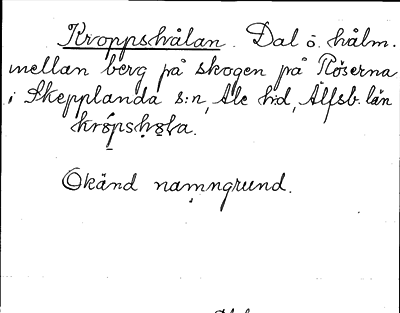 Kroppshålan. Dal o. hålm.
mellan berg på skogen på Röserna
i Skepplanda s:n, Ale hd, Älfsb. län
Okänd namngrund.